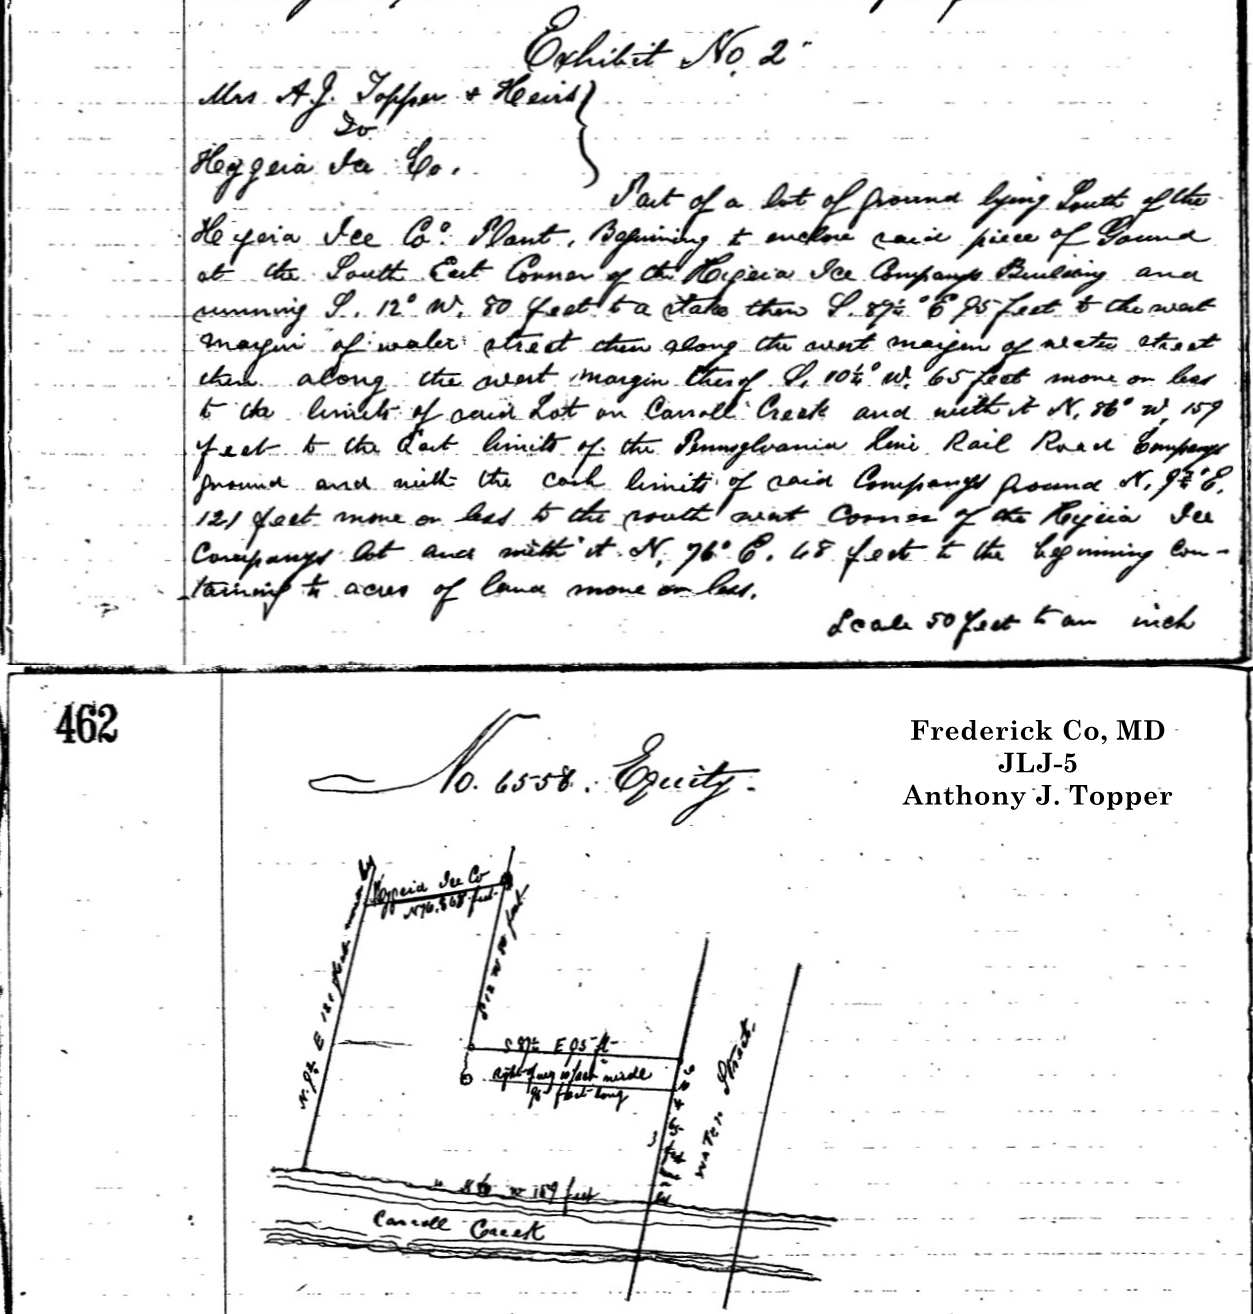 Exhibit No. 2
Mrs A. J. Topper & Heirs
To
Hygeia Ice Co.
Part of a lot of ground lying South of the
Hygeia Ice Co. Plant. Beginning to enclose said piece of Ground
at the South East Corner of the Hygeia Ice Companys Building and
running S. 12° W. 80 feet to a stake then S. 87½° E 95 feet to the west
margin of water street then along the west margin of water street
then along the west margin thereof S. 10½° W. 65 feet more or less
to the limits of said Lot on Carroll Creek and with it N. 86° W. 159
feet to the East limits of the Pennsylvania line Rail Road Companys
ground and with the east limits of said Companys ground N. 9½° E.
121 feet more or less to the south west corner of the Hygeia Ice
Companys lot and with it N. 76° E. 68 feet to the beginning con-
taining acres of land more or less.
Scale 50 feet to an inch
462
No. 6558. Equity.
Frederick Co, MD
JLJ-5
Anthony J. Topper
Hygeia Ice Co
N 76. E 68 feet
S 12 W 80 feet
N. 9½ E 121 feet
S 87½ E 95 ft
right of way feet
95 feet long
Water Street
W 159 feet
Carroll Creek